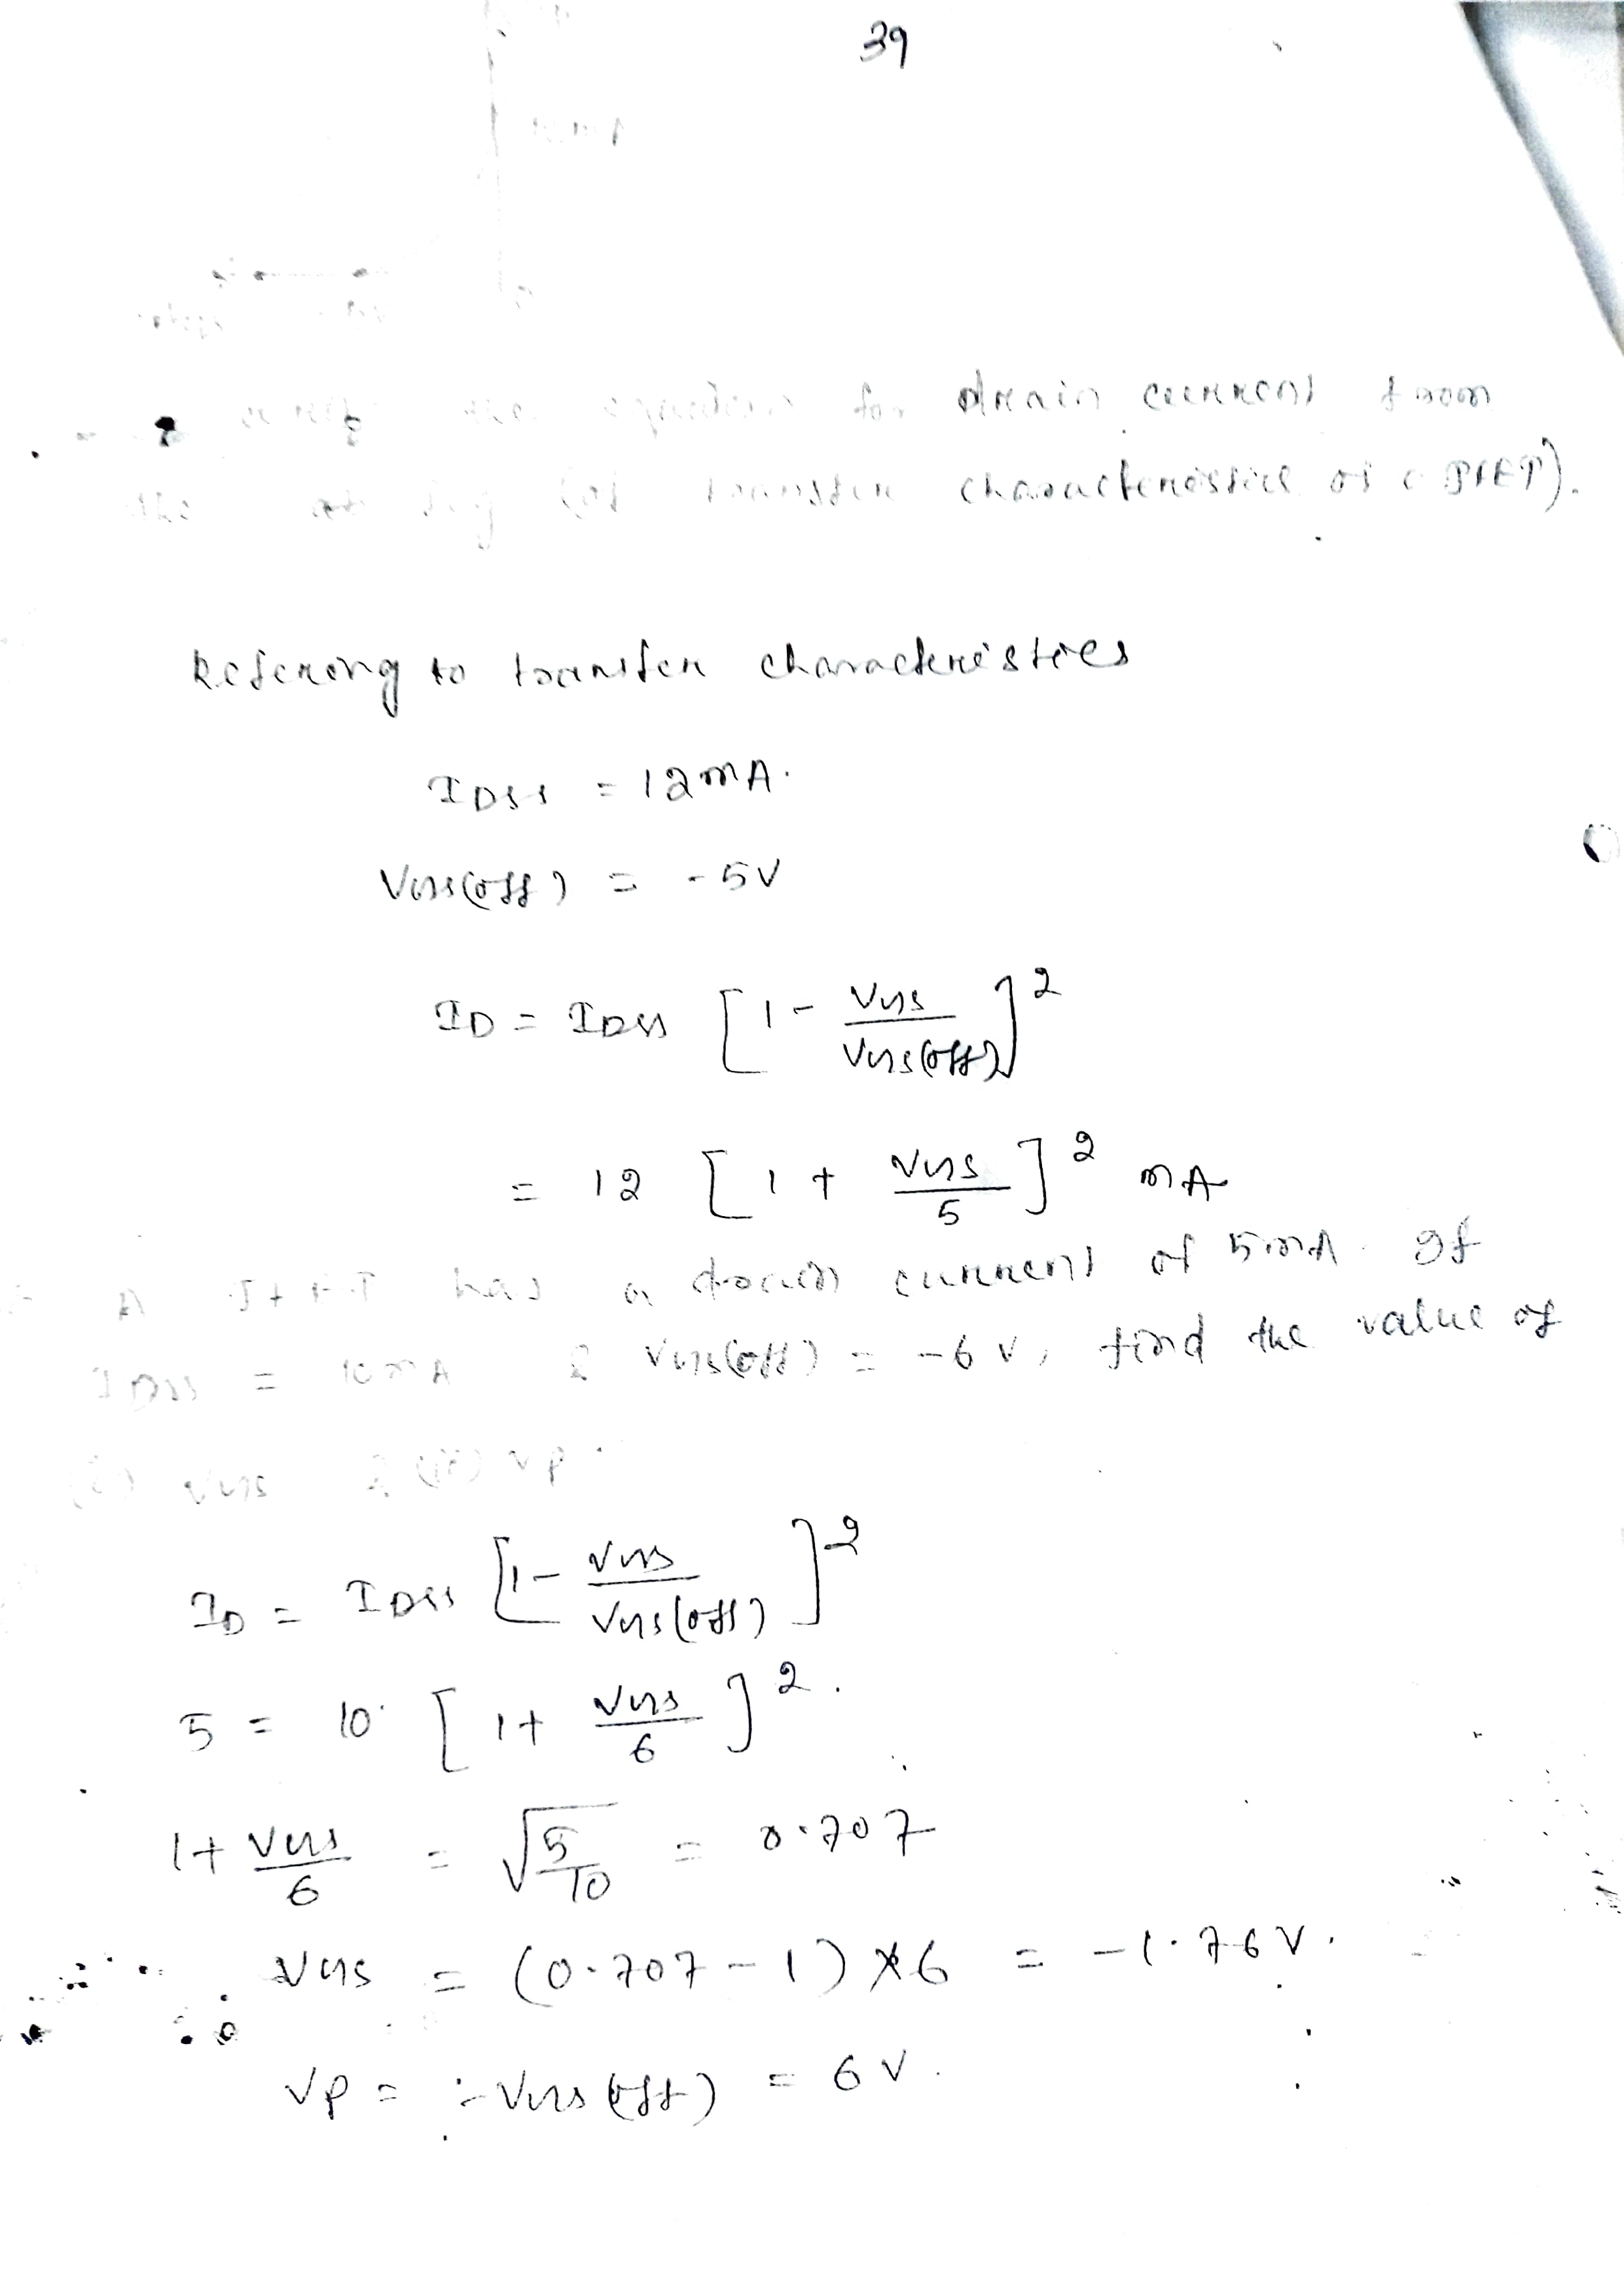 39
equation for drain current from
the fig (of transfer characteristics of a JFET).
Refering to transfer characteristics
IDSS = 12mA.
VGS(off) = -5V
ID = IDSS [1 - VGS / VGS(off)]²
= 12 [1 + VGS / 5]² mA
A JFET has a drain current of 5mA. If
IDSS = 10mA & VGS(off) = -6V, find the value of
(i) VGS & (ii) VP.
ID = IDSS [1 - VGS / VGS(off)]²
5 = 10 [1 + VGS / 6]².
1 + VGS / 6 = √5/10 = 0.707
VGS = (0.707 - 1) × 6 = -1.76V.
VP = -VGS(off) = 6V.